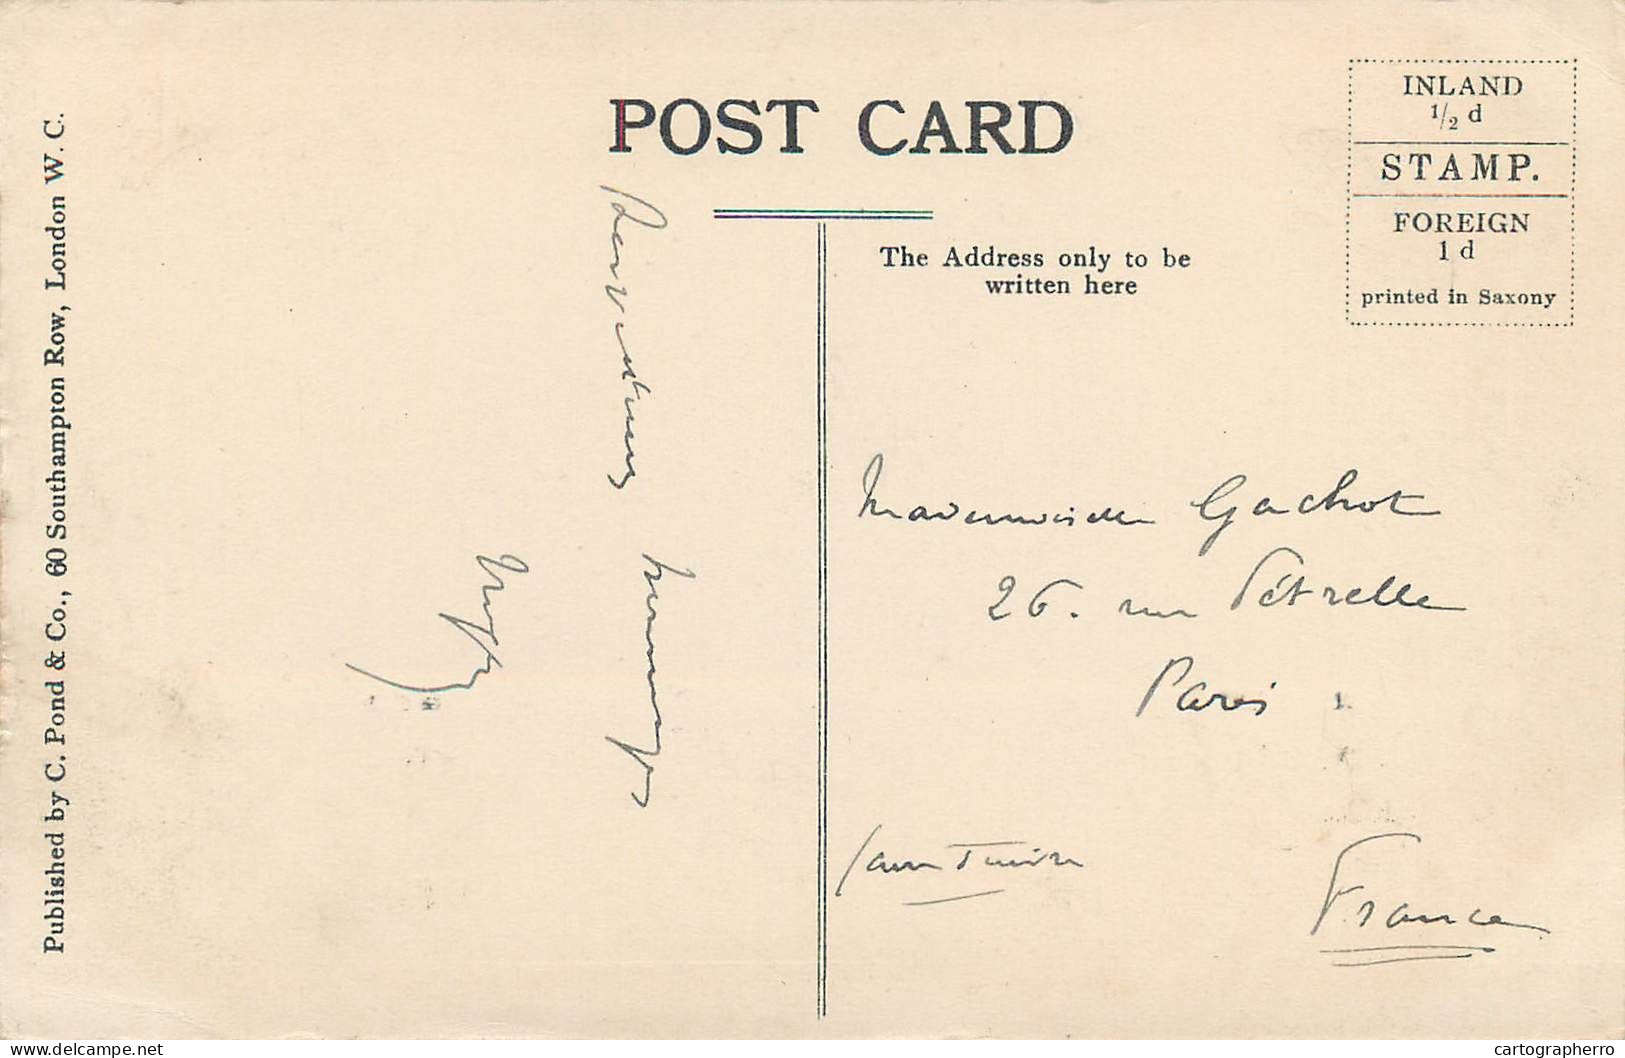 POST CARD
INLAND
1/2 d
STAMP.
FOREIGN
1 d
printed in Saxony
The Address only to be
written here
Published by C. Pond & Co., 60 Southampton Row, London W. C.
hommages
Mademoiselle Gachot
26. rue Pétrelle
Paris
France
delcampe.net
cartographerro